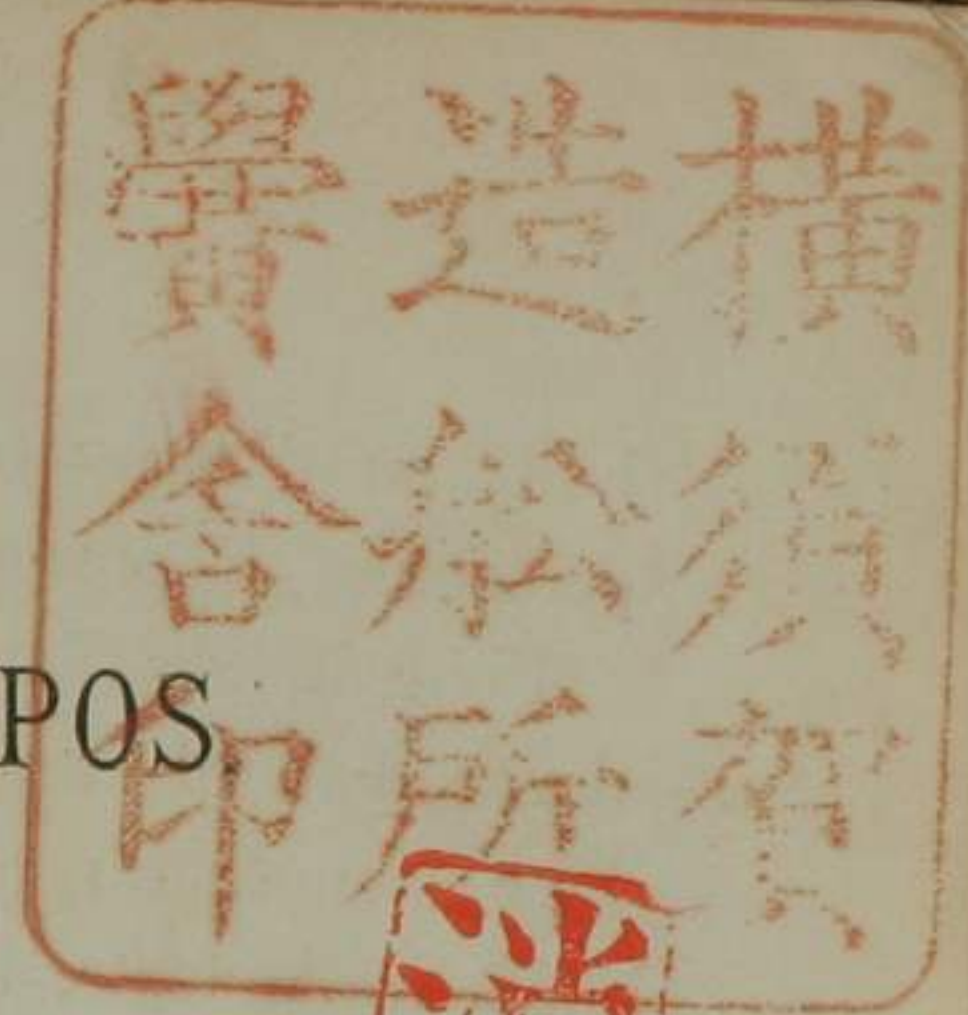 横須賀
造舩所
黌舎印
POS